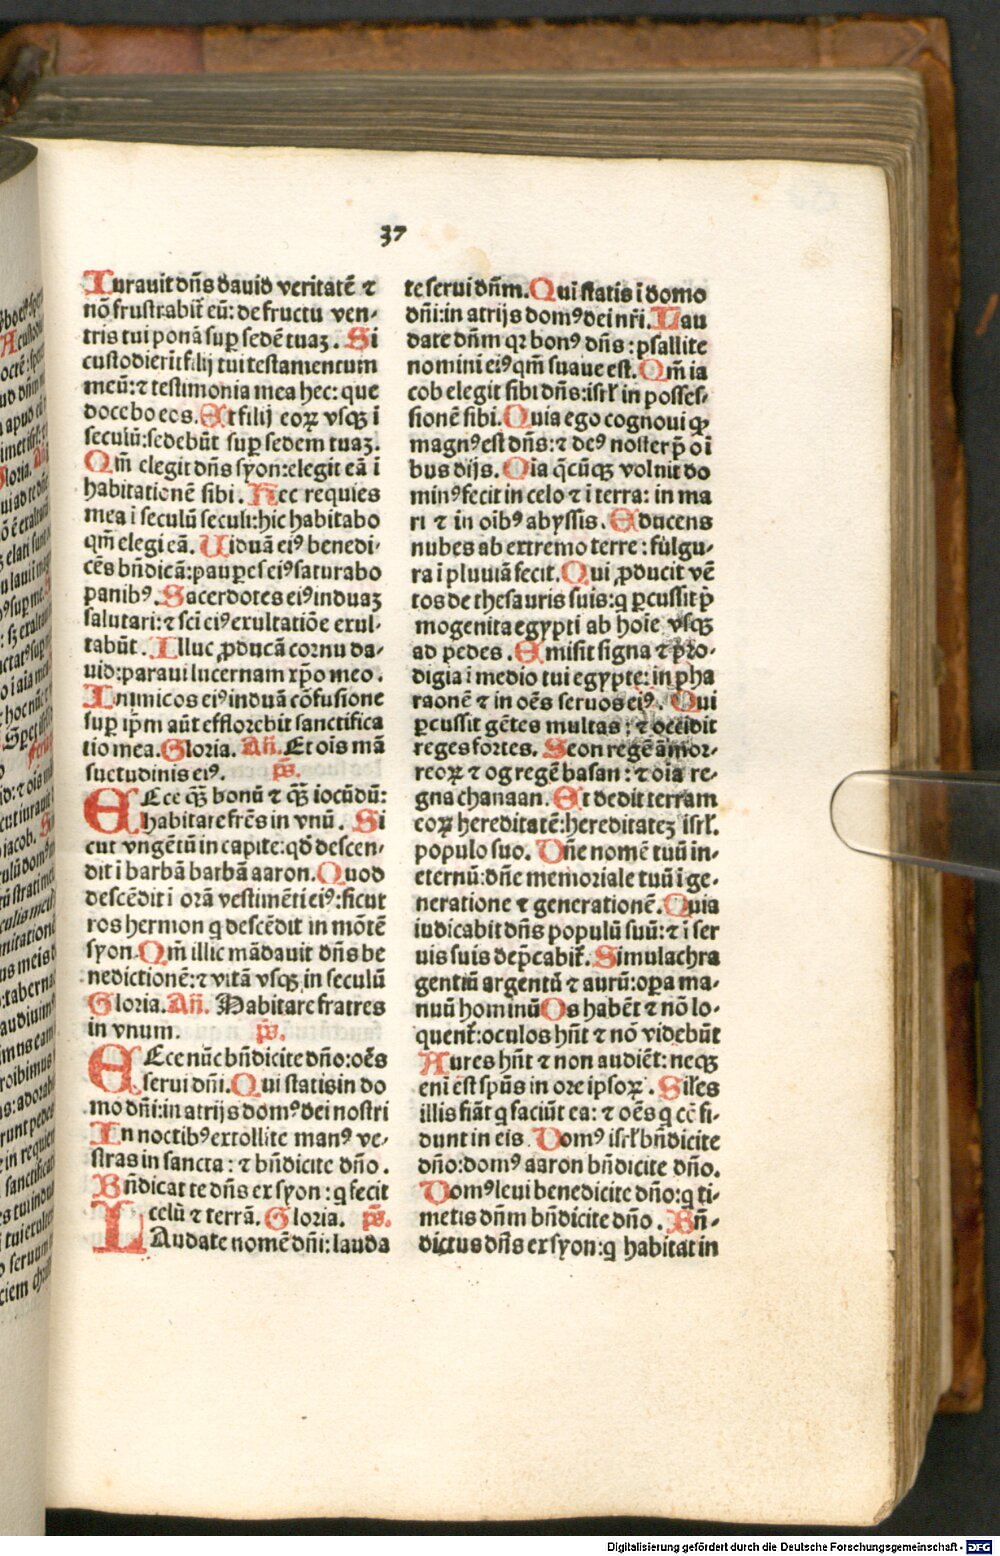 37
Iurauit dñs dauid veritatẽ ⁊
nõ frustrabit̃ eũ: de fructu ven-
tris tui ponã sup̱ sedẽ tuaʒ. Si
custodierĩt filij tui testamentum
meũ: ⁊ testimonia mea hec: que
docebo eos. Et filij eoꝝ vsqꝫ ĩ
seculũ: sedebũt sup̱ sedem tuaʒ.
Qm̃ elegit dñs syon: elegit eã ĩ
habitationẽ sibi. Hec requies
mea ĩ seculũ seculi: hic habitabo
qm̃ elegi eã. Uiduã eiꝰ benedi-
cẽs bñdicã: paup̱es eiꝰ saturabo
panibꝰ. Sacerdotes eiꝰ induaʒ
salutari: ⁊ sc̃i eiꝰ exultatiõe exul-
tabũt. Illuc ꝓducã cornu da-
uid: paraui lucernam xp̃o meo.
Inimicos eiꝰ induã cõfusione
sup̱ ip̃m aũt efflorebit sanctifica
tio mea. Gloria. Añ. Et oĩs mã
suetudinis eiꝰ. ps̃.
ECce q̃ꝫ bonũ ⁊ q̃ꝫ iocũdũ:
habitare fr̃es in vnũ. Si
cut vngẽtũ in capite: qđ descen-
dit ĩ barbã barbã aaron. Quod
descẽdit ĩ orã vestimẽti eiꝰ: sicut
ros hermon q descẽdit in mõtẽ
syon. Qm̃ illic mãdauit dñs be
nedictionẽ: ⁊ vitã vsqꝫ in seculũ
Gloria. Añ. Habitare fratres
in vnum. ps̃.
ECce nũc bñdicite dño: oẽs
serui dñi. Qui statis in do
mo dñi: in atrijs domꝰ dei nostri
In noctibꝰ extollite manꝰ ve-
stras in sancta: ⁊ bñdicite dño.
Bñdicat te dñs ex syon: q fecit
celũ ⁊ terrã. Gloria. ps̃.
LAudate nomẽ dñi: lauda
te serui dñm. Qui statis ĩ domo
dñi: in atrijs domꝰ dei nr̃i. Lau
date dñm qꝛ bonꝰ dñs: psallite
nomini eiꝰ qm̃ suaue est. Qm̃ ia
cob elegit sibi dñs: isrł in posses-
sionẽ sibi. Quia ego cognoui ꝙ
magnꝰ est dñs: ⁊ deꝰ noster p̃ oĩ
bus dijs. Oĩa q̃cũqꝫ voluit do
minꝰ fecit in celo ⁊ ĩ terra: in ma
ri ⁊ in oĩbꝰ abyssis. Educens
nubes ab extremo terre: fulgu-
ra ĩ pluuiã fecit. Qui ꝓducit vẽ
tos de thesauris suis: q p̱cussit p̃
mogenita egypti ab hoĩe vsqꝫ
ad pedes. Emisit signa ⁊ p̃ro-
digia ĩ medio tui egypte: in pha
raonẽ ⁊ in oẽs seruos eiꝰ. Qui
p̱cussit gẽtes multas: ⁊ occidit
reges fortes. Seon regẽ amor-
reoꝝ ⁊ og regẽ basan: ⁊ oĩa re-
gna chanaan. Et dedit terram
eoꝝ hereditatẽ: hereditateʒ isrł.
populo suo. Dñe nomẽ tuũ in-
eternũ: dñe memoriale tuũ ĩ ge-
neratione ⁊ generationẽ. Quia
iudicabit dñs populũ suũ: ⁊ ĩ ser
uis suis dep̃cabit̃. Simulachra
gentiũ argentũ ⁊ aurũ: op̱a ma-
nuũ hominũ Os habẽt ⁊ nõ lo-
quent̃: oculos hñt ⁊ nõ videbũt
Aures hñt ⁊ non audiẽt: neqꝫ
enĩ est spũs in ore ipsoꝝ. Siles
illis fiãt q faciũt ea: ⁊ oẽs q cõfi-
dunt in eis. Domꝰ isrł bñdicite
dño: domꝰ aaron bñdicite dño.
Domꝰ leui benedicite dño: q ti-
metis dñm bñdicite dño. Bñ-
dictus dñs ex syon: q habitat in
Digitalisierung gefördert durch die Deutsche Forschungsgemeinschaft - DFG